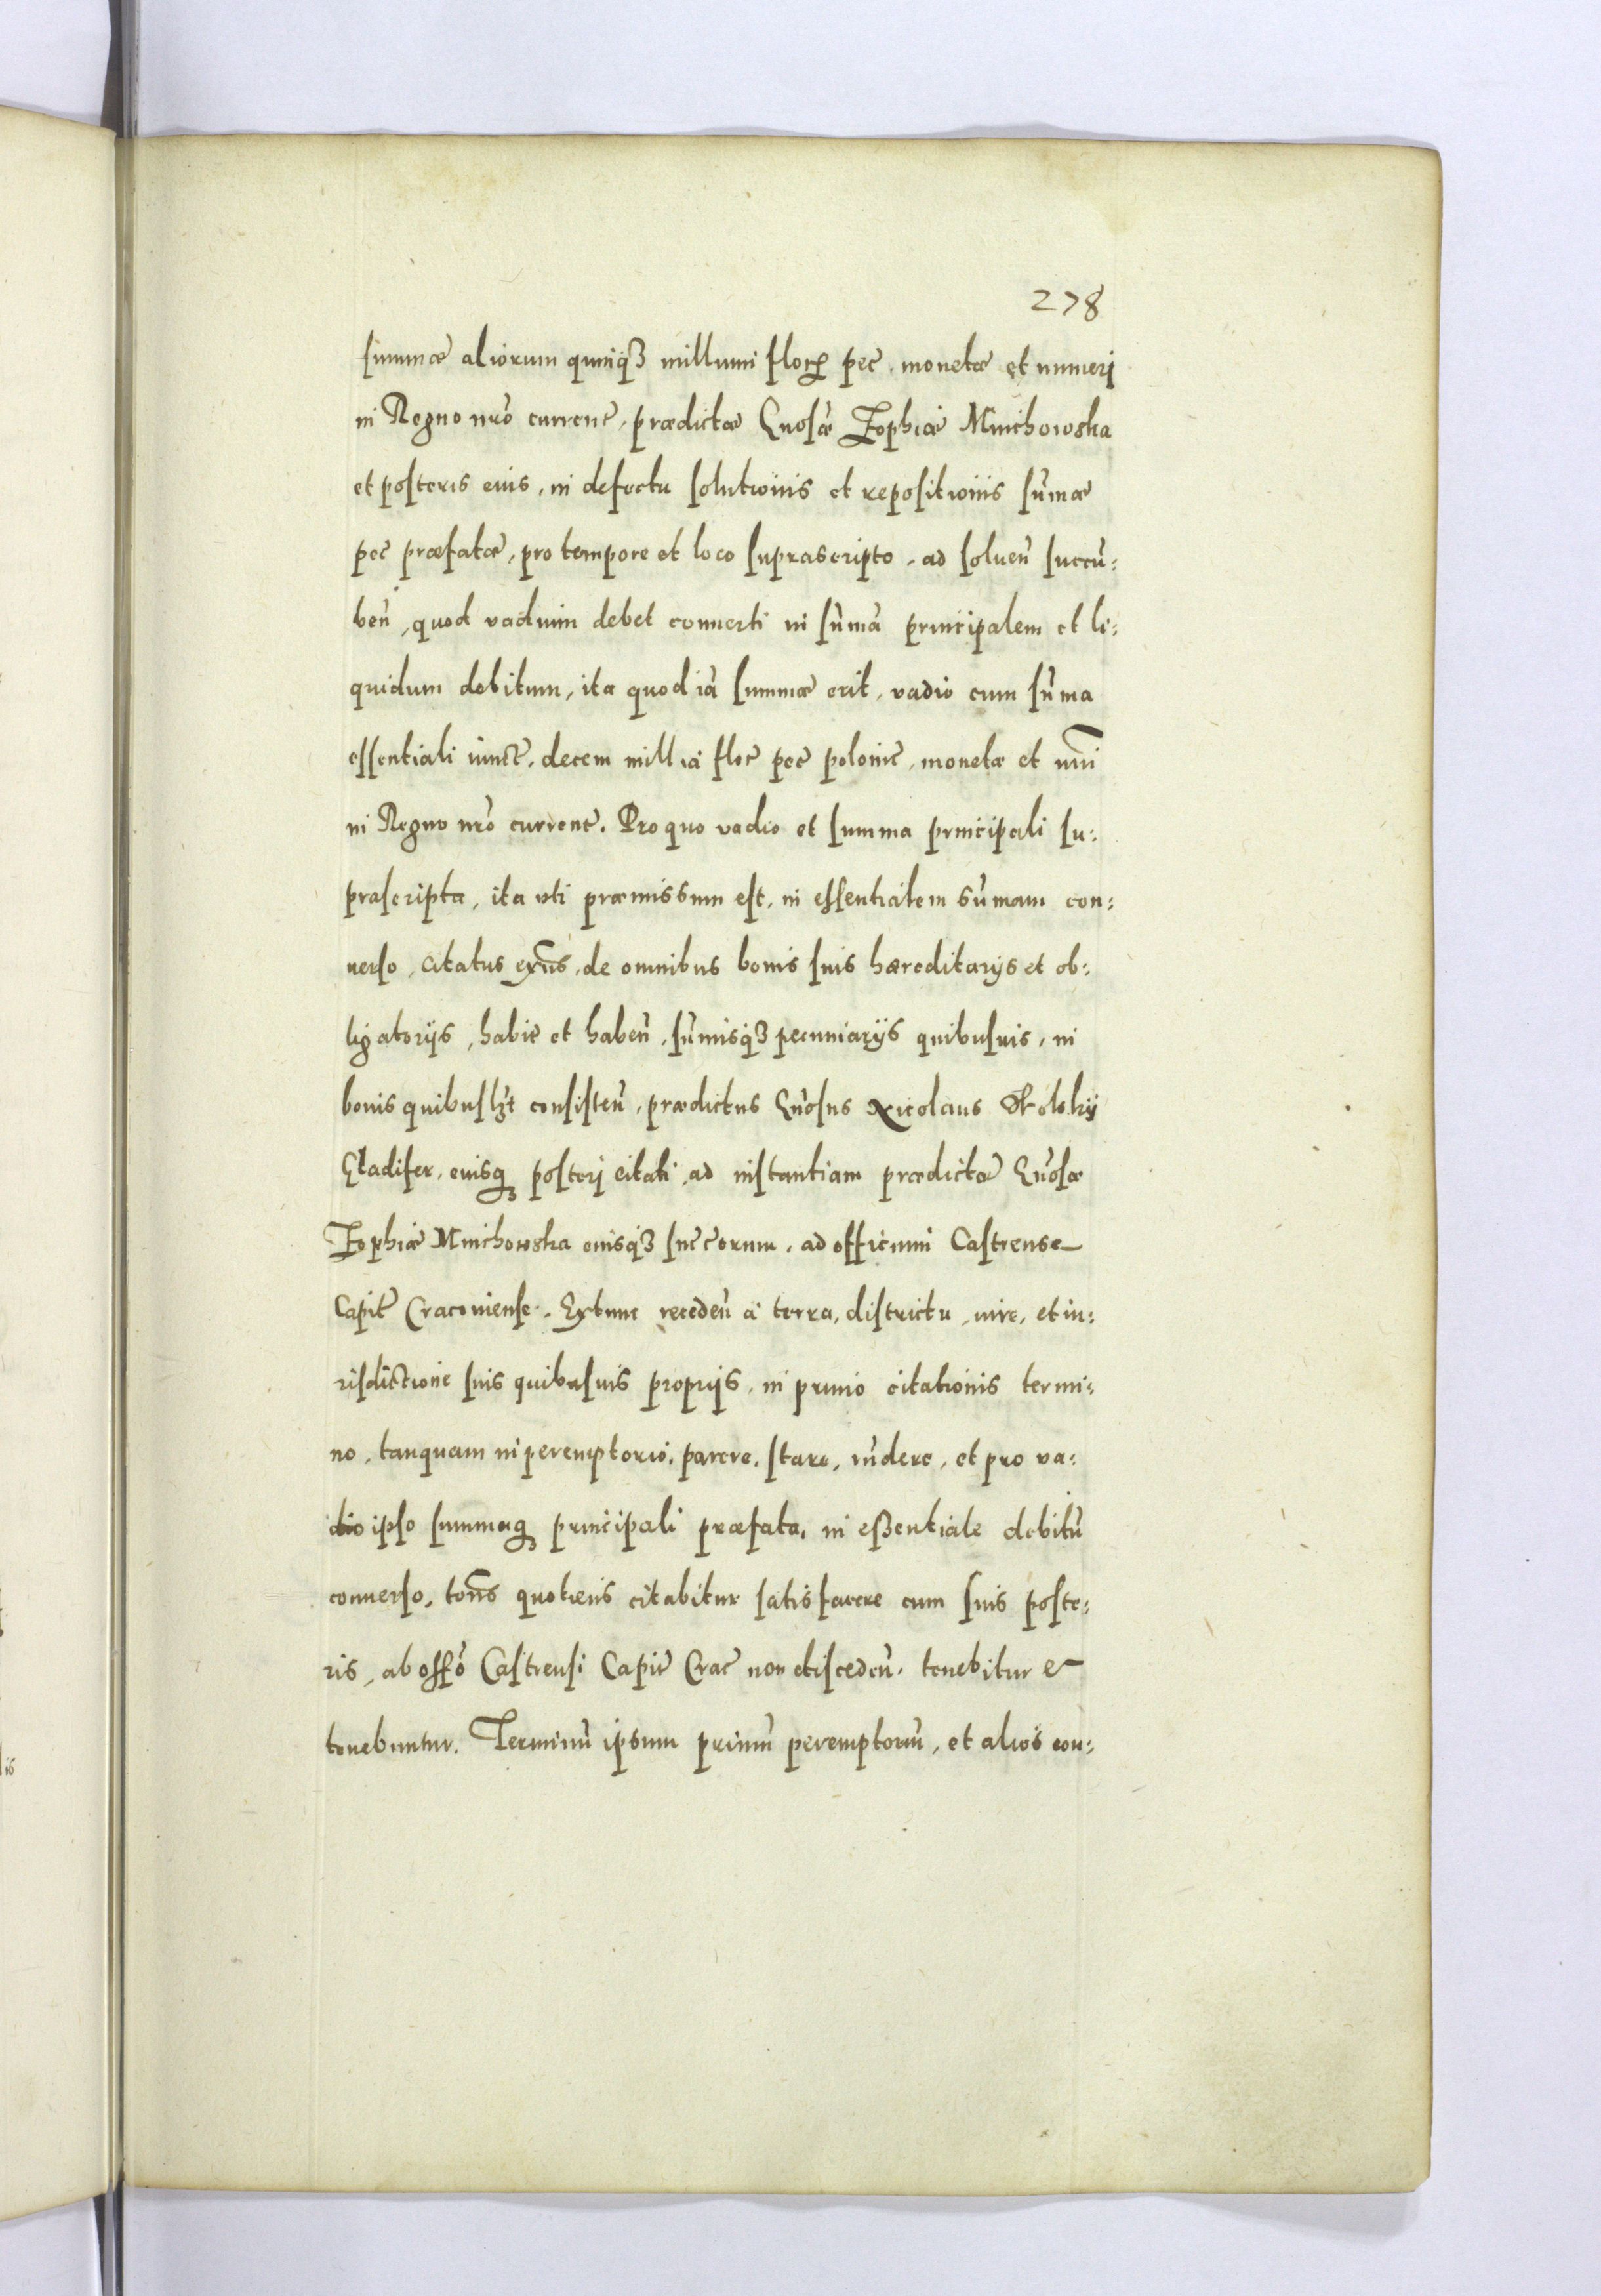 278
summæ aliorum quinqȝ millium floꝝ pec̃, monetæ et numeri
in Regno nr̃o curreñ, prædictæ Gñosæ Zophiæ Mnichowska
et posteris eius, in defectu solutionis et repositionis sum̃æ
pec̃ præfatæ, pro tempore et loco suprascripto, ad solueñ succũ:
beñ, quod vadium debet conuerti in sum̃ã principalem et li:
quidum debitum, ita quod iã summæ erit, vadio cum sum̃a
essentiali iunct̃, decem millia floc̃ pec̃ polonic̃, monetæ et nr̃i
in Regno nr̃o current̃. Pro quo vadio et summa principali su:
prascripta, ita uti præmissum est, in essentialem sum̃am con:
uerso, citatus exñs, de omnibus bonis suis hæreditarijs et ob:
ligatorijs, habit̃ et habeñ, sum̃isqȝ pecuniarijs quibusuis, in
bonis quibuslƺt consisteñ, prædictus Gñosus Nicolaus
Gladifer, eiusqȝ posteri citati, ad instantiam prædictæ Gñosæ
Zophiæ Mnichowska eiusqȝ succ̃orum, ad officium Castrense
Capit̃ Cracouiense. Extunc recedeñ à terra, districtu, iure, et iu:
risdictione suis quibusuis proprijs, in primo citationis termi:
no, tanquam in peremptorio, parere, stare, rñdere, et pro va:
dio ipso summaqȝ principali præfata, in eßentiale debitũ
conuerso, totiẽs quotiens citabitur satisfacere cum suis poste:
ris, ab offõ Castrensi Capit̃ Crac̃ non discedeñ, tenebitur et
tenebuntur. Terminũ ipsum primũ peremptoriũ, et alios con: